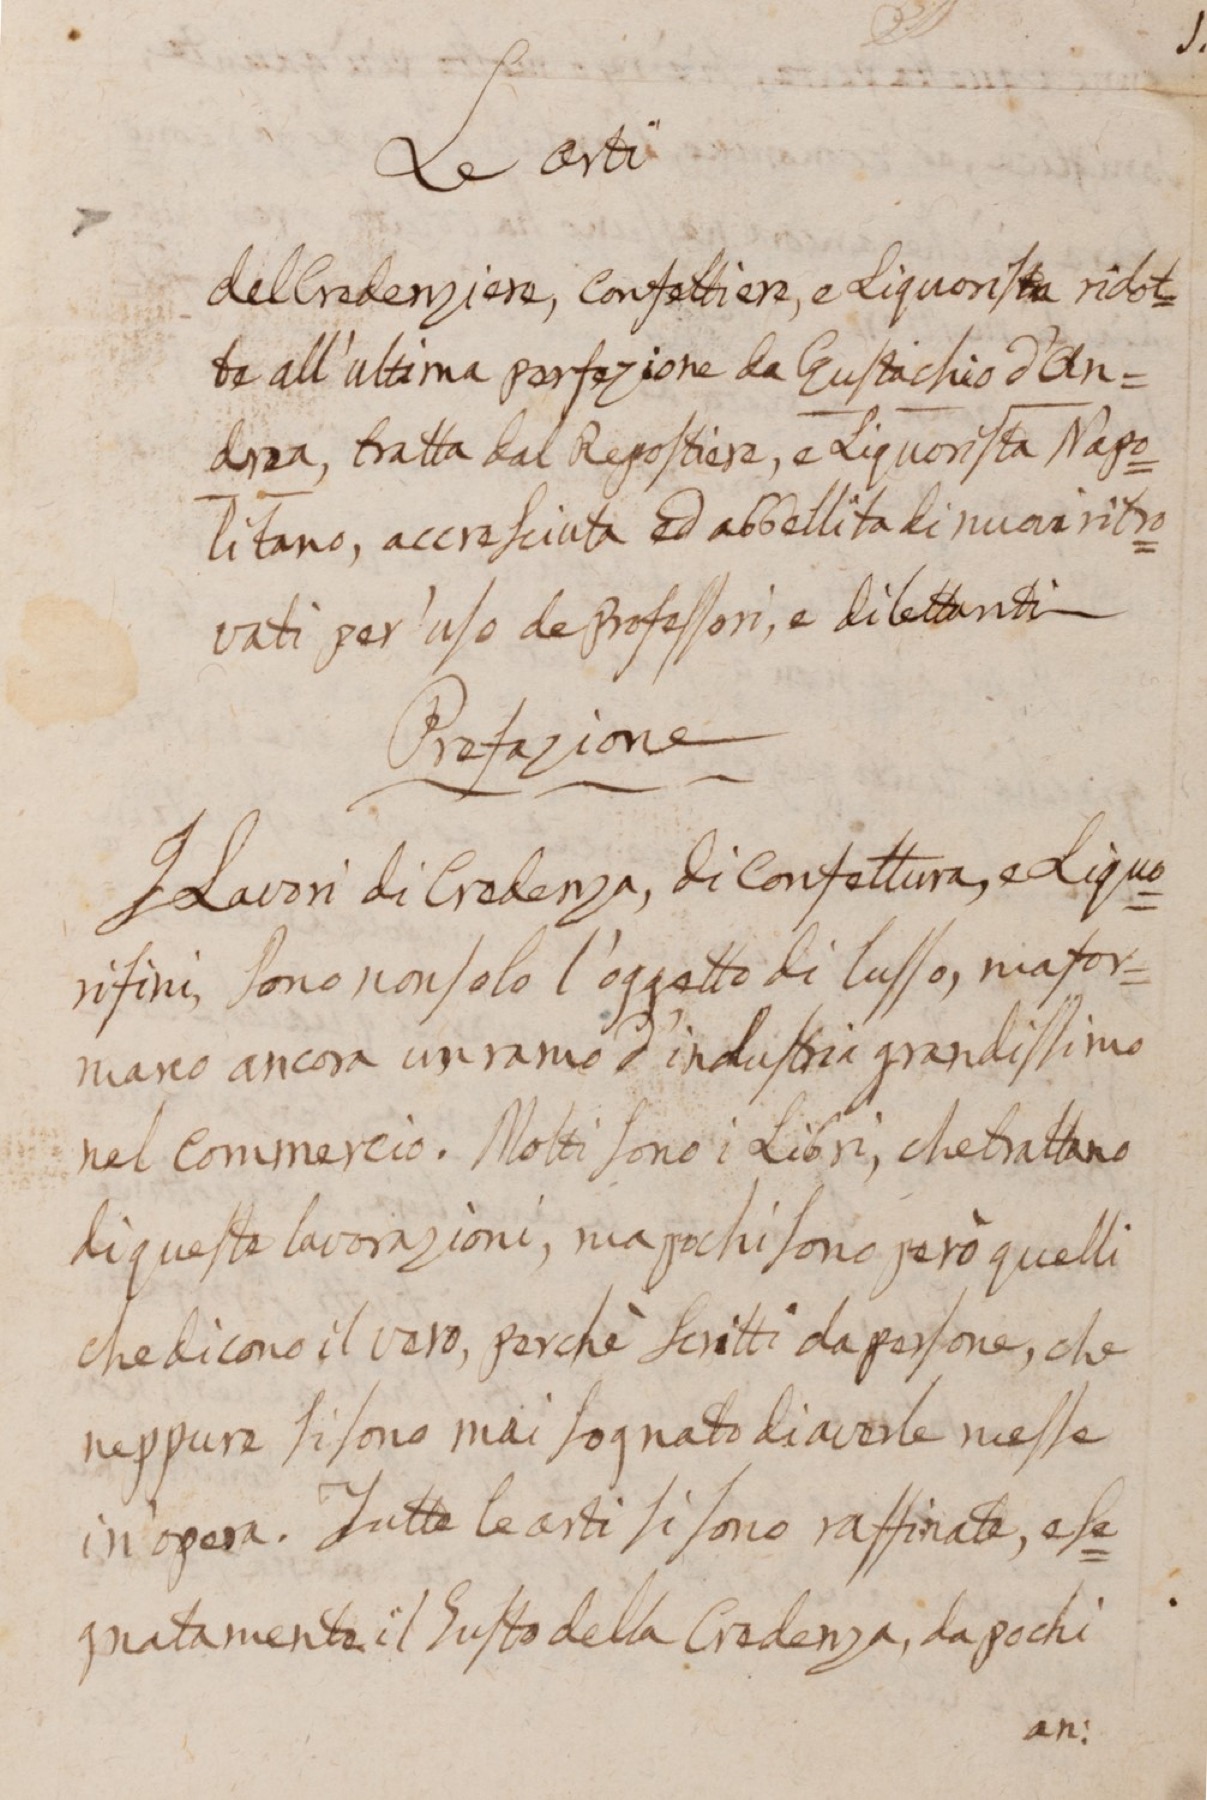 1.
Le arti
del Credenziere, Confettiere, e Liquorista ridot=
te all'ultima perfezione da Eustachio d'An=
drea, tratta dal Repostiere, e Liquorista Napo=
litano, accresciuta ed abbellita di nuovi ritro=
vati per l'uso de Professori, e dilettanti
Prefazione
I Lavori di Credenza, di Confettura, e Liquo=
rifini, sono non solo l'oggetto di lusso, ma for=
mano ancora un ramo d'industria grandissimo
nel Commercio. Molti sono i Libri, che trattano
di queste lavorazioni, ma pochi sono però quelli
che dicono il vero, perchè scritti da persone, che
neppure si sono mai sognato di averle messe
in opera. Tutte le arti si sono raffinate, e se=
gnatamente il Gusto della Credenza, da pochi
an: